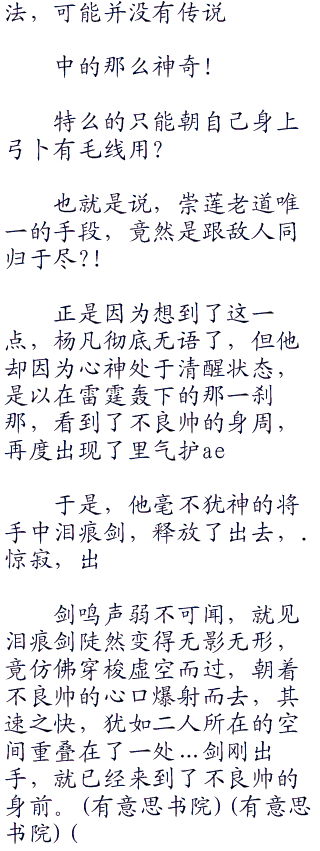 法，可能并没有传说
中的那么神奇！
特么的只能朝自己身上
弓卜有毛线用？
也就是说，崇莲老道唯
一的手段，竟然是跟敌人同
归于尽？！
正是因为想到了这一
点，杨凡彻底无语了，但他
却因为心神处于清醒状态，
是以在雷霆轰下的那一刹
那，看到了不良帅的身周，
再度出现了里气护ae
于是，他毫不犹神的将
手中泪痕剑，释放了出去，．
惊寂，出
剑鸣声弱不可闻，就见
泪痕剑陡然变得无影无形，
竟仿佛穿梭虚空而过，朝着
不良帅的心口爆射而去，其
速之快，犹如二人所在的空
间重叠在了一处…剑刚出
手，就已经来到了不良帅的
身前。（有意思书院）（有意思
书院）（